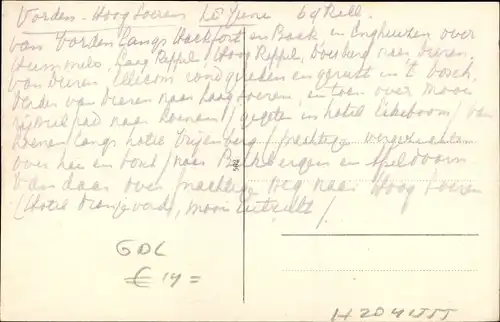 Vorden - Hoog Soeren 15 Juni 69 Kill.
van Vorden langs Hackfort en Baak en Enghuizen over
Hummelo, Laag Keppel / Hoog Keppel, Doesburg naar Dieren.
van Dieren rondgereden en gerust in 't bosch.
Verder van Dieren naar Laag Soeren, en toen over mooi
rijwielpad naar Loenen / gegeten in hotel Eikeboom / van
Loenen langs hotel / prachtige vergezichten
over hei en bosch / naar Beekbergen en Apeldoorn
van daar over prachtige weg naar Hoog Soeren
(Hotel Oranjeoord, mooi uitzicht) /
GDL
€ 14 =
H2041555